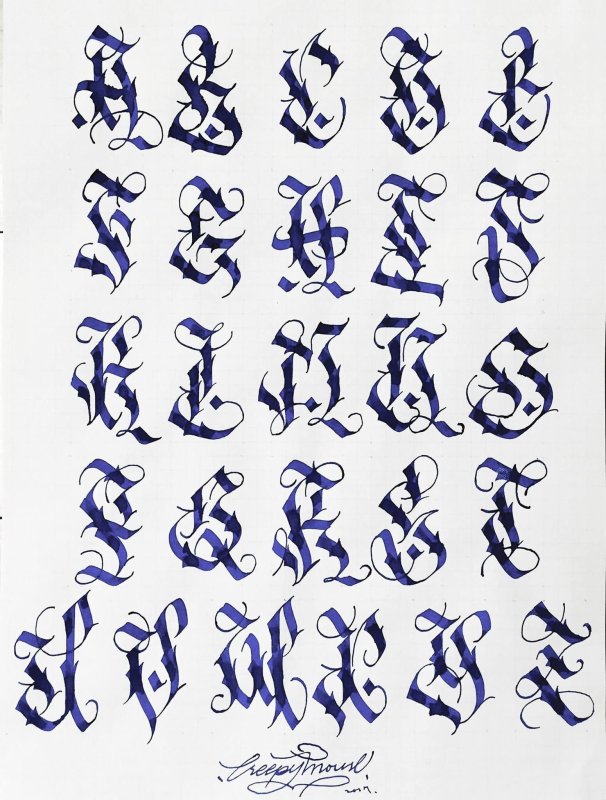 A B C D E
F G H I J
K L M N O
P Q R S T
U V W X Y Z
Creepymouse
2017.